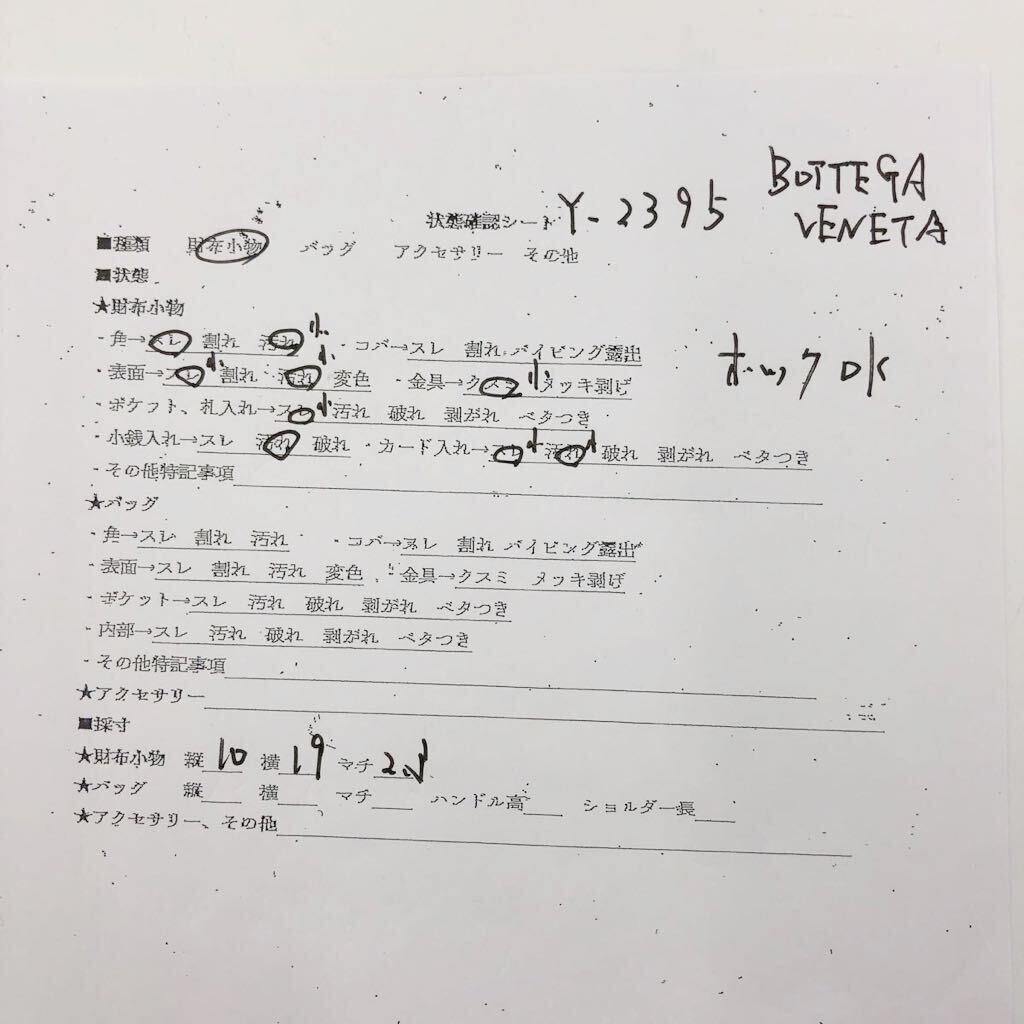 BOTTEGA
VENETA
状態確認シート Y-2395
■種類 財布小物 バッグ アクセサリー その他
■状態
★財布小物
・角→スレ 割れ 汚れ小 ・コバ→スレ 割れ パイピング露出
ホックOK
・表面→スレ小 割れ 汚れ小 変色 ・金具→クスミ小 メッキ剥げ
・ポケット、札入れ→スレ小 汚れ 破れ 剥がれ ベタつき
・小銭入れ→スレ 汚れ 破れ ・カード入れ→スレ小 汚れ小 破れ 剥がれ ベタつき
・その他特記事項
★バッグ
・角→スレ 割れ 汚れ ・コバ→スレ 割れ パイピング露出
・表面→スレ 割れ 汚れ 変色 ・金具→クスミ メッキ剥げ
・ポケット→スレ 汚れ 破れ 剥がれ ベタつき
・内部→スレ 汚れ 破れ 剥がれ ベタつき
・その他特記事項
★アクセサリー
■採寸
★財布小物 縦10 横19 マチ
★バッグ 縦 横 マチ ハンドル高 ショルダー長
★アクセサリー、その他